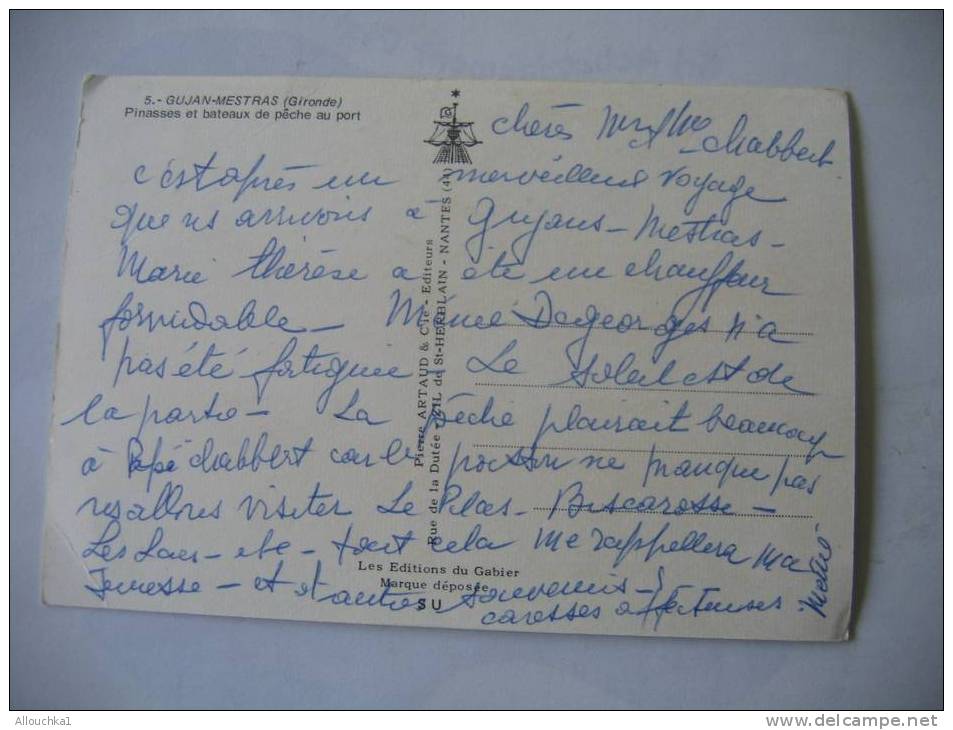 5.- GUJAN-MESTRAS (Gironde)
Pinasses et bateaux de pêche au port
chers Mr & Mme Chabbert
c'est après un merveilleux voyage
que ns arrivons à Gujans-Mestras-
Marie thérèse a été un chauffeur
formidable - Mémée Dageorges n'a
pas été fatiguée Le soleil est de
la partie - La pêche plairait beaucoup
à Papé chabbert car le poisson ne manque pas
ns allons visiter Le Pilas - Biscarosse -
Les Lacs - etc - tout cela me rappellera ma
Jeunesse - et d'autres souvenirs -
caresses affectueuses
Pierre ARTAUD & Cie - Editeurs
Rue de la Dutée - Z.I.L de St-HERBLAIN - NANTES (44)
Les Editions du Gabier
Marque déposée
SU
Allouchka1
www.delcampe.net